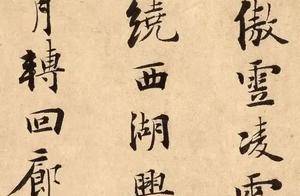 傲靈凌
繞西湖興
月轉回廊